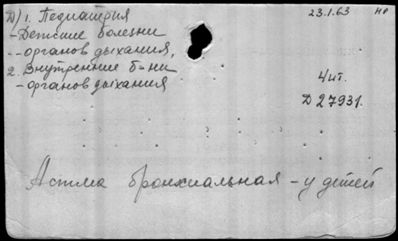 Д) 1. Педиатрия
23.1.63 нр
- Детские болезни
-- органов дыхания,
2. Внутренние б-ни
- органов дыхания
4 ит.
Д 27931.
Астма бронхиальная - у детей